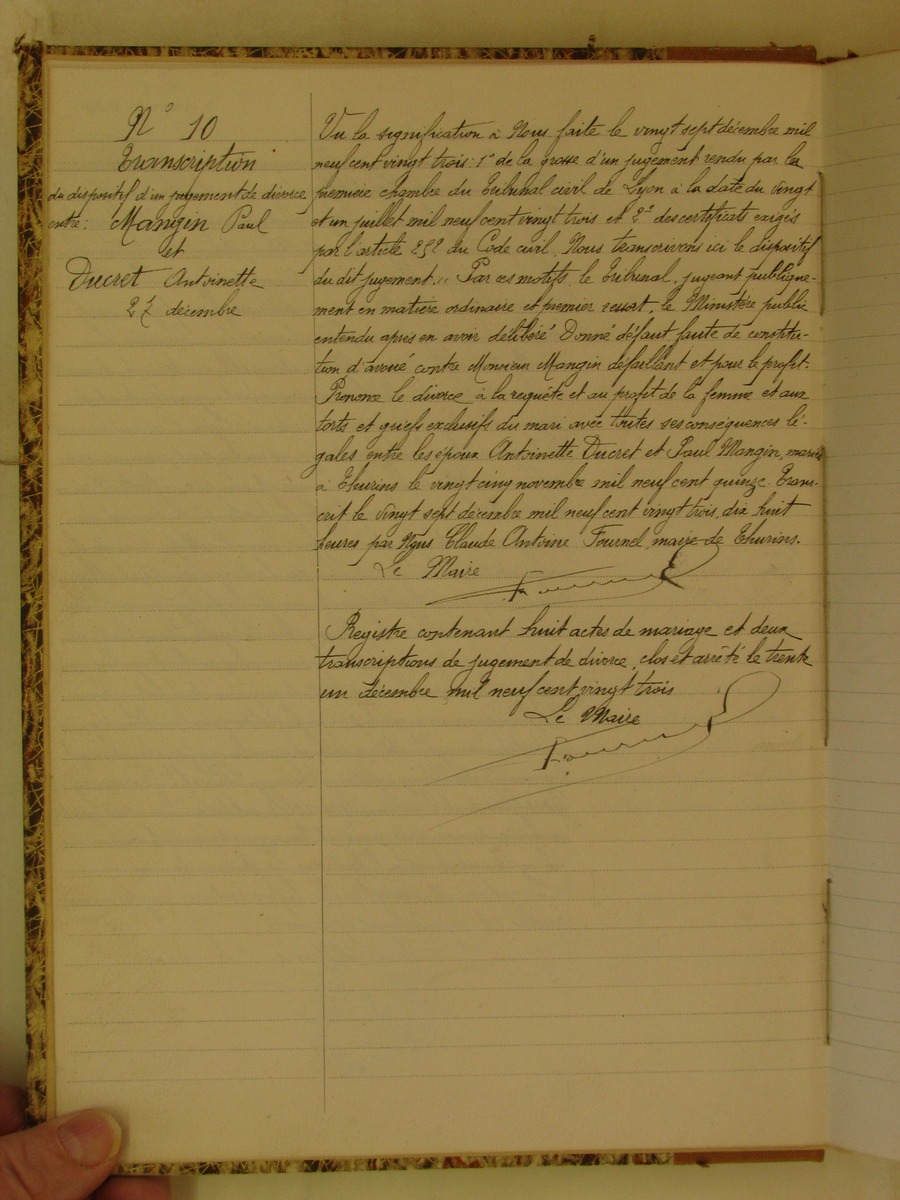 N° 10
Transcription
du dispositif d'un jugement de divorce
entre : Mangin Paul
et
Ducret Antoinette
27 décembre
Vu la signification à Nous faite le vingt sept décembre mil
neuf cent vingt trois : 1° de la grosse d'un jugement rendu par la
première chambre du Tribunal civil de Lyon à la date du vingt
et un juillet mil neuf cent vingt trois et 2° des certificats exigés
par l'article 252 du Code civil, Nous transcrivons ici le dispositif
du dit jugement .. Par ces motifs, le Tribunal, jugeant publique-
ment en matière ordinaire et premier ressort, le Ministère public
entendu après en avoir délibéré Donne défaut faute de constitu-
tion d'avoué contre Monsieur Mangin défaillant et pour le profit.
Prononce le divorce à la requête et au profit de la femme et aux
torts et griefs exclusifs du mari avec toutes ses conséquences lé-
gales entre les époux Antoinette Ducret et Paul Mangin, mariés
à Thurins le vingt cinq novembre mil neuf cent quinze Trans-
crit le vingt sept décembre mil neuf cent vingt trois, dix huit
heures par Nous Claude Antoine Fournel, maire de Thurins.
Le Maire
Fournel
Registre contenant huit actes de mariage et deux
transcriptions de jugement de divorce, clos et arrêté le trente
un décembre mil neuf cent vingt trois
Le Maire
Fournel